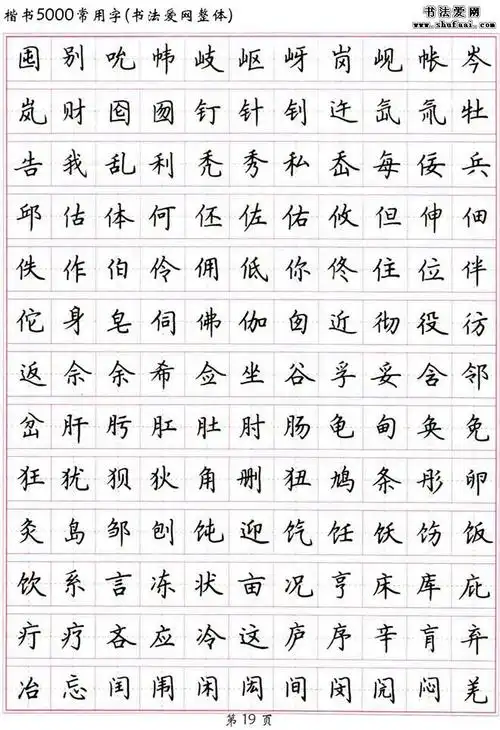 楷书5000常用字(书法爱网整体)
书法爱网
www.shufuai.com
囤别吮帏岐岖岈岗岘帐岑
岚财囵囫钉针钊迕氙氚牡
告我乱利秃秀私岙每佞兵
邱估体何伾佐佑攸但伸佃
佚作伯伶佣低你佟住位伴
佗身皂伺佛伽囱近彻役彷
返佘余希佥坐谷孚妥含邻
岔肝肟肛肚肘肠龟甸奂免
狂犹狈狄角删狃鸠条彤卵
灸岛邹刨饨迎饩饪饫饬饭
饮系言冻状亩况亨床库庇
疔疗吝应冷这庐序辛肓弃
冶忘闰闱闲闳间闵闶闷羌
第19页